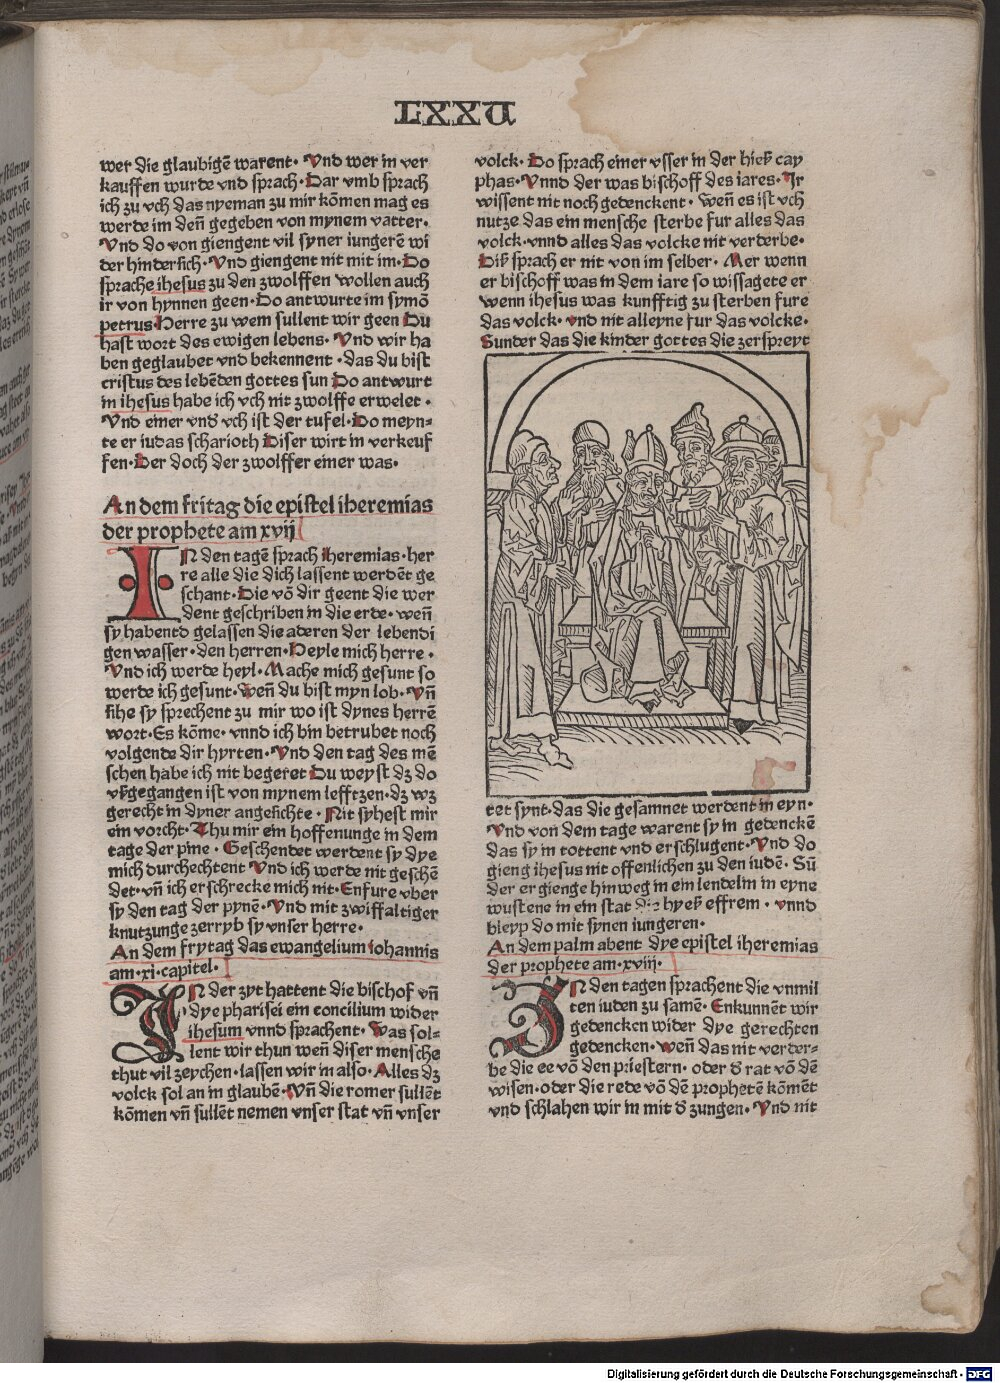 LXXV
wer die glaubigē warent· Vnd wer in ver
kauffen wurde vnd sprach· Dar vmb sprach
ich zu vch das nyeman zu mir kōmen mag es
werde im deñ gegeben von mynem vatter·
Vnd do von giengent vil syner iungerē wi
der hindersich· Vnd giengent nit mit im· Do
sprache ihesus zu den zwolffen wollen auch
ir von hynnen geen· Do antwurte im symō
petrus· Herre zu wem sullent wir geen Du
hast wort des ewigen lebens· Vnd wir ha
ben geglaubet vnd bekennent · das du bist
cristus des lebēden gottes sun Do antwurt
in ihesus habe ich vch nit zwolffe erwelet ·
Vnd einer vnd vch ist der tufel· Do meyn-
te er iudas scharioth Diser wirt in verkeuf
fen· Der doch der zwolffer einer was·
An dem fritag die epistel iheremias
der prophete am xvij
IN den tagē sprach iheremias· her
re alle die dich lassent werdēt ge
schant· Die vō dir geent die wer
dent geschriben in die erde· weñ
sy habentd gelassen die aderen der lebendi
gen wasser· den herren· Heyle mich herre·
Vnd ich werde heyl· Mache mich gesunt so
werde ich gesunt· Weñ du bist myn lob· Vñ
sihe sy sprechent zu mir wo ist dynes herrē
wort· Es kōme· vnnd ich bin betrubet noch
volgende dir hyrten· Vnd den tag des mē
schen habe ich nit begeret Du weyst dz do
vßgegangen ist von mynem lefftzen· dz wz
gerecht in dyner angesichte· Nit syhest mir
ein vorcht· Thu mir ein hoffenunge in dem
tage der pine · Geschendet werdent sy dye
mich durchechtent Vnd ich werde nit geschē
det· vñ ich erschrecke mich nit· Enfure vber
sy den tag der pynē· Vnd mit zwiffaltiger
knutzunge zerryb sy vnser herre·
An dem frytag das ewangelium iohannis
am·xi·capitel·
IN der zyt hattent die bischof vñ
dye pharisei ein concilium wider
ihesum vnnd sprachent· Was sol-
lent wir thun weñ diser mensche
thut vil zeychen· lassen wir in also· Alles dz
volck sol an in glaubē· Vñ die romer sullēt
kōmen vñ sullēt nemen vnser stat vñ vnser
volck· Do sprach einer vsser in der hieß cay
phas· Vnnd der was bischoff des iares· Ir
wissent nit noch gedenckent· Weñ es ist vch
nutze das ein mensche sterbe fur alles das
volck· vnnd alles das volcke nit verderbe·
Diß sprach er nit von im selber· Mer wenn
er bischoff was in dem iare so wissagete er
wenn ihesus was kunfftig zu sterben fure
das volck· vnd nit alleyne fur das volcke·
Sunder das die kinder gottes die zerspreyt
tet synt· das die gesamnet werdent in eyn·
Vnd von dem tage warent sy in gedenckē
das sy in tottent vnd erschlugent· Vnd do
gieng ihesus nit offenlichen zu den iudē· Sū
der er gienge hinweg in ein lendelin in eyne
wustene in ein stat die hyeß effrem· vnnd
bleyp do mit synen iungeren·
An dem palm abent dye epistel iheremias
der prophete am·xviii·
IN den tagen sprachent die vnmil
ten iuden zu samē· Enkunnēt wir
gedencken wider dye gerechten
gedencken· Weñ das nit verder-
be die ee vō den priestern· oder d̄ rat vō dē
wisen· oder die rede vō dē prophetē kōmēt
vnd schlahen wir in mit d̄ zungen· Vnd nit
Digitalisierung gefördert durch die Deutsche Forschungsgemeinschaft - DFG